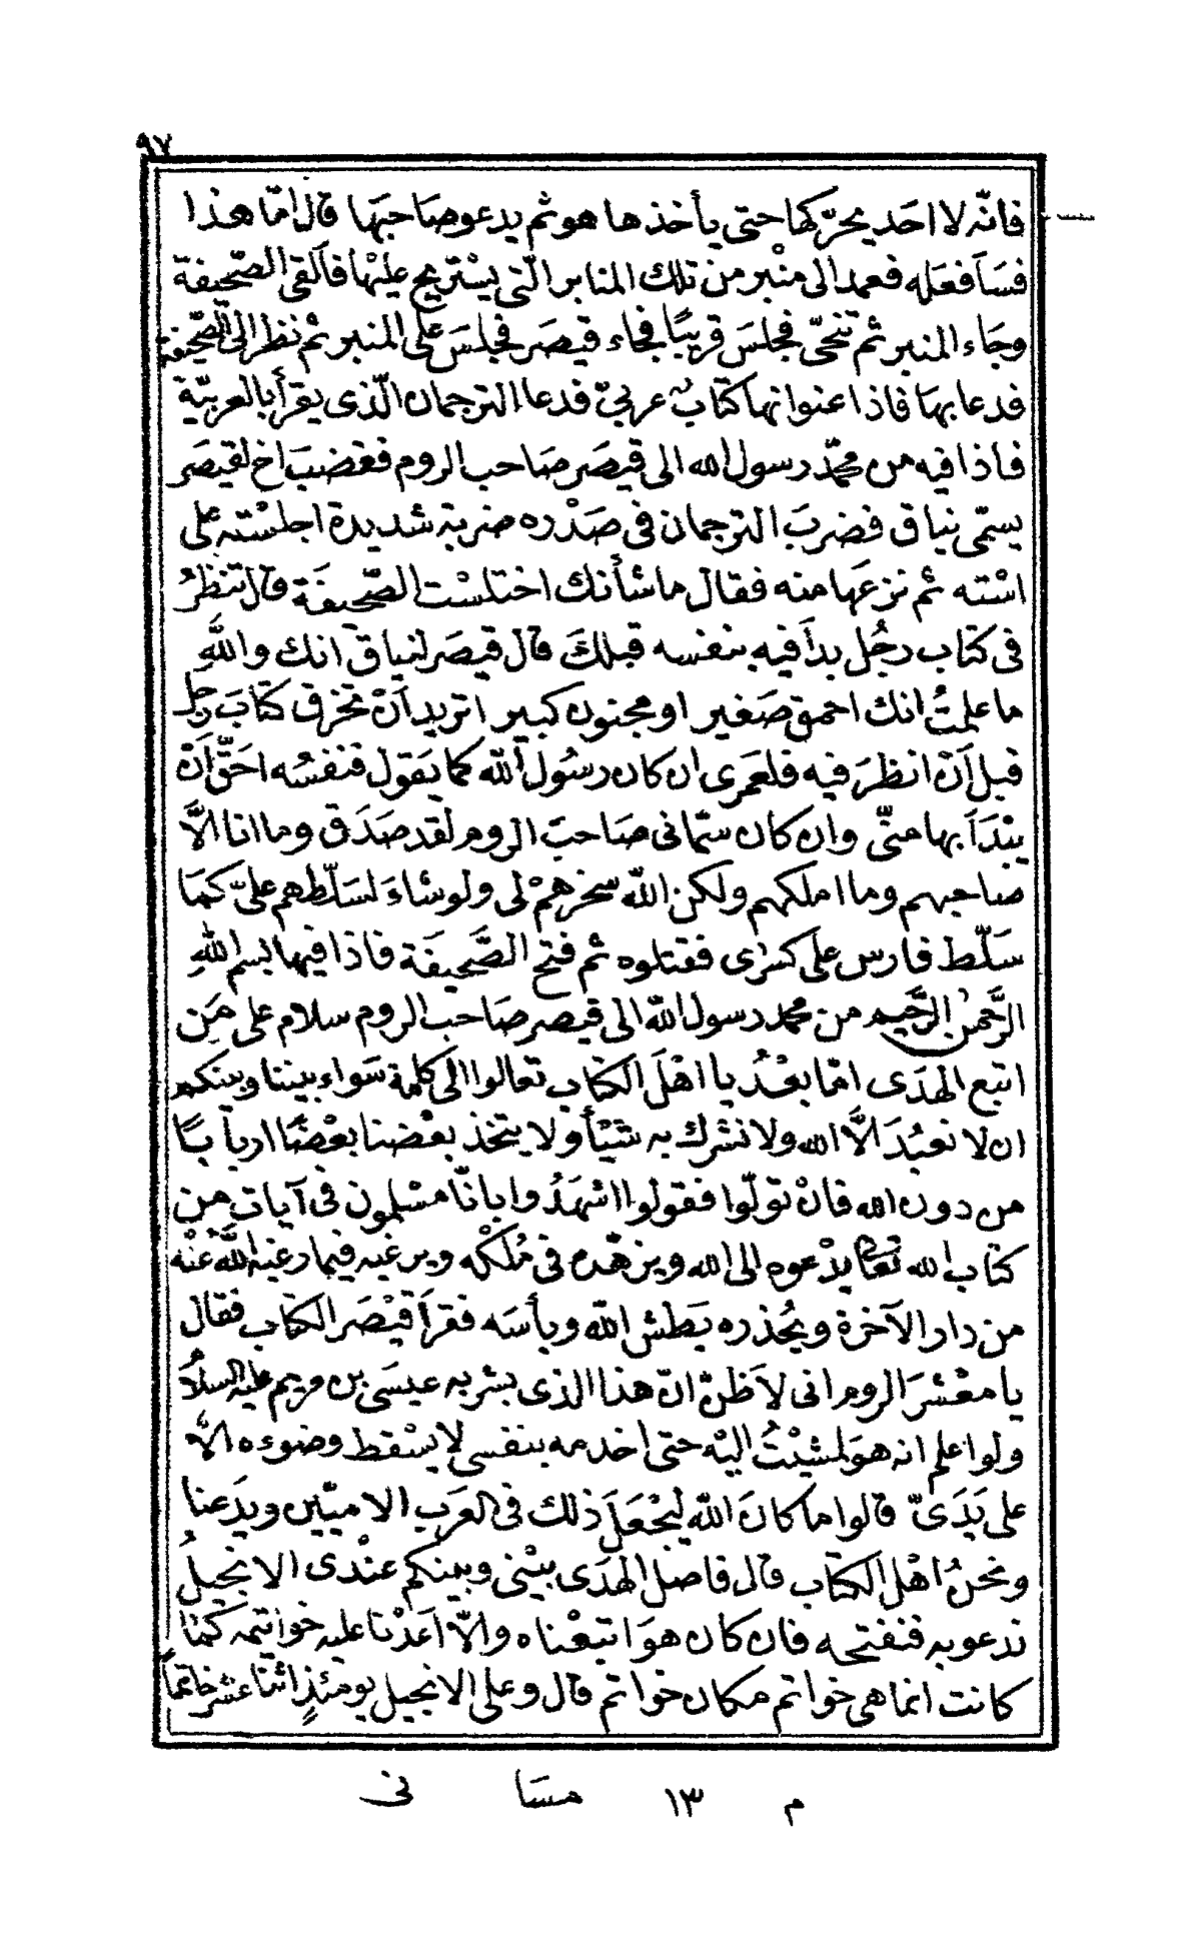 ٩٧
فانّه لا احَد يحرّكها حتى يأخذها هو ثم يدعو صَاحبَها قال امّا هذا
فسَأفعَله فعمد الى منْبر من تلك المنابر الّتى يسْتريح عليْها فألقى الصّحيفة
وجَاء المنبر ثم تنحّى فجلسَ قريبًا فجاء قيصَر فجلسَ على المنبر ثم نظر الى الصّحيفة
فدعا بهَا فاذا عنوانها كتابٌ عربىّ فدعا الترجمان الّذى يقرأ بالعربيّة
فاذا فيه من محمّد رسول الله الى قيصَر صَاحب الروم فغضبَ اخ لقيصَر
يسمّى نياق فضربَ الترجمان فى صَدْره ضربة شديدة اجلسْته على
اسْته ثم نزعَها منه فقال ما شأنك اختلسْت الصّحيفَة قال تنظرُ
فى كتاب رجُل بدأَ فيه بنفسه قبلكَ قال قيصَر لنياق انك واللّهِ
ما علمتُ انك احمق صَغير او مجنون كبير اتريد اَنْ تخرق كتابَ رجل
قبل اَنْ انظرَ فيه فلعَمرى ان كان رسُول اللّه كما يَقول فنفسُه احَقّ اَنْ
يبْدَأ بها منّى وان كان سمّانى صَاحبَ الروم لقد صَدَق وما انا الاَّ
صاحبهم وما املكهم ولكن اللّه سخرهمْ لى ولو شاءَ لسَلّطهم علىّ كمَا
سَلّط فارس على كسْرَى فقتلوه ثم فتح الصَّحيفَة فاذا فيها بسم اللّهِ
الرَّحمٰن الرَّحيم من محمد رسول اللّه الى قيصر صَاحب الروم سلام على مَن
اتبع الهدَى امّا بعْدُ يا اهْلَ الكتاب تعالوا الى كلمة سَواء بيننا وبينكم
ان لا نعبُدَ الاَّ الله ولا نشرك به شيْأ ولا يتخذ بعْضنا بعْضًا اربأبًا
من دون الله فانْ تولّوا فقولوا اشهَدُوا بانّا مسْلمون فى آيات من
كتاب الله تعالى يدْعوه الى الله ويزهّده فى مُلْكه ويرغبه فيما رغبه اللَّهُ عنْه
من دار الآخرة ويُحذره بَطش اللّه وبأسَه فقرأَ قيْصَر الكتاب فقال
يا معْشرَ الروم انى لاَظنّ انّ هذا الذى بشر به عيسَى بن مريم عليه السلام
ولو اعلم انه هوَ لمشيْتُ اليْه حتى اخدمه بنفسى لا يسْقط وضوءه الاّ
على يَدَىّ قالوا ما كانَ اللّه ليجْعَلَ ذلك فى العرَب الاميّين ويدَعنا
ونحنُ اهْل الكتاب قال فاصل الهدَى بيْنى وبينكم عنْدى الانجيلُ
ندعو به فنفتحه فان كان هوَ اتبعْناه والاّ اعَدْنا عليه خواتيمه كمَا
كانت انما هى خواتم مكان خواتم قال وعلى الانجيل يومئذٍ اثنا عشر خاتمًا
م ١٣ مسَا نى